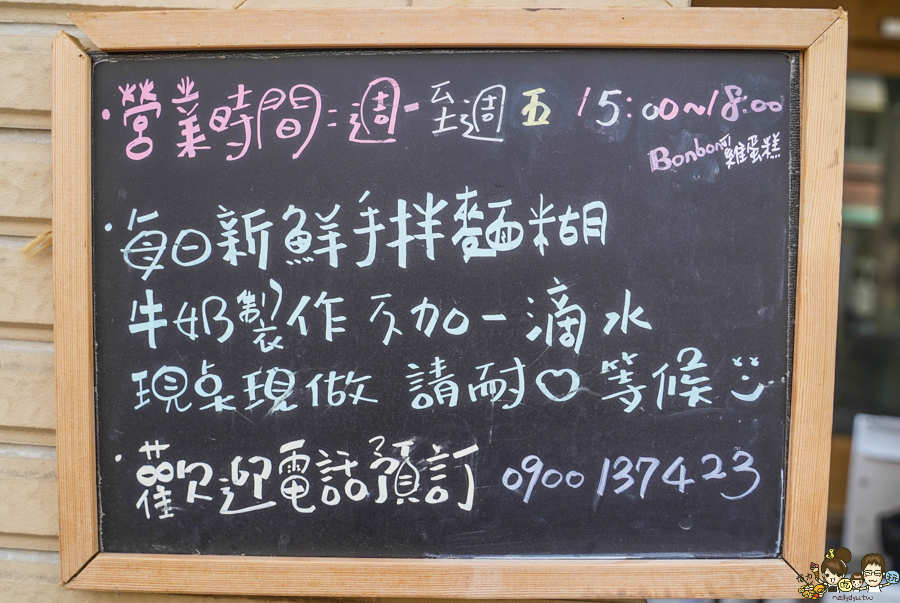 ·營業時間:週一至週五 15:00~18:00
Bonbon雞蛋糕
·每日新鮮手拌麵糊
牛奶製作 不加一滴水
現桌現做 請耐♡等候
·歡迎電話預訂 0900137423
nellydyu.tw